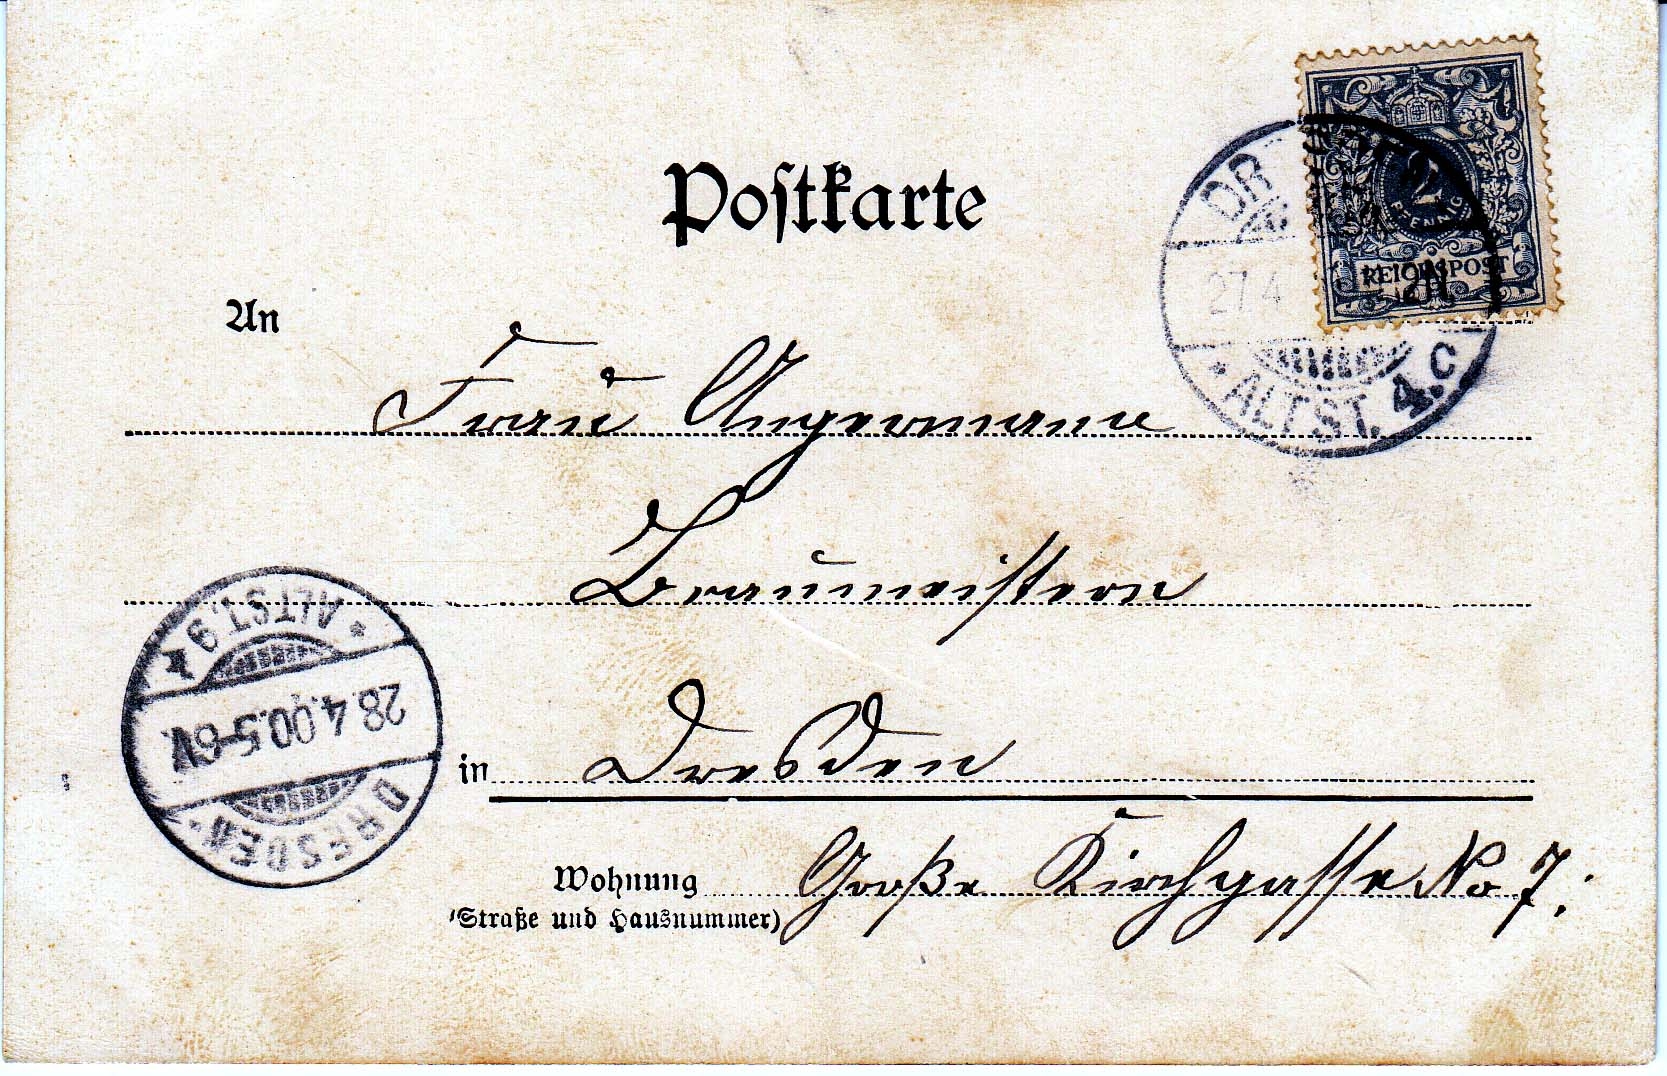 Postkarte
An
Frau Angermann
Braumeistern
in Dresden
Wohnung Große Kirchgasse No 7.
(Straße und Hausnummer)
2
PFENNIG
REICHSPOST
DR
27.4
ALTST. 4.c
DRESDEN
28.4.00.5-6V.
* ALTST. 9 *